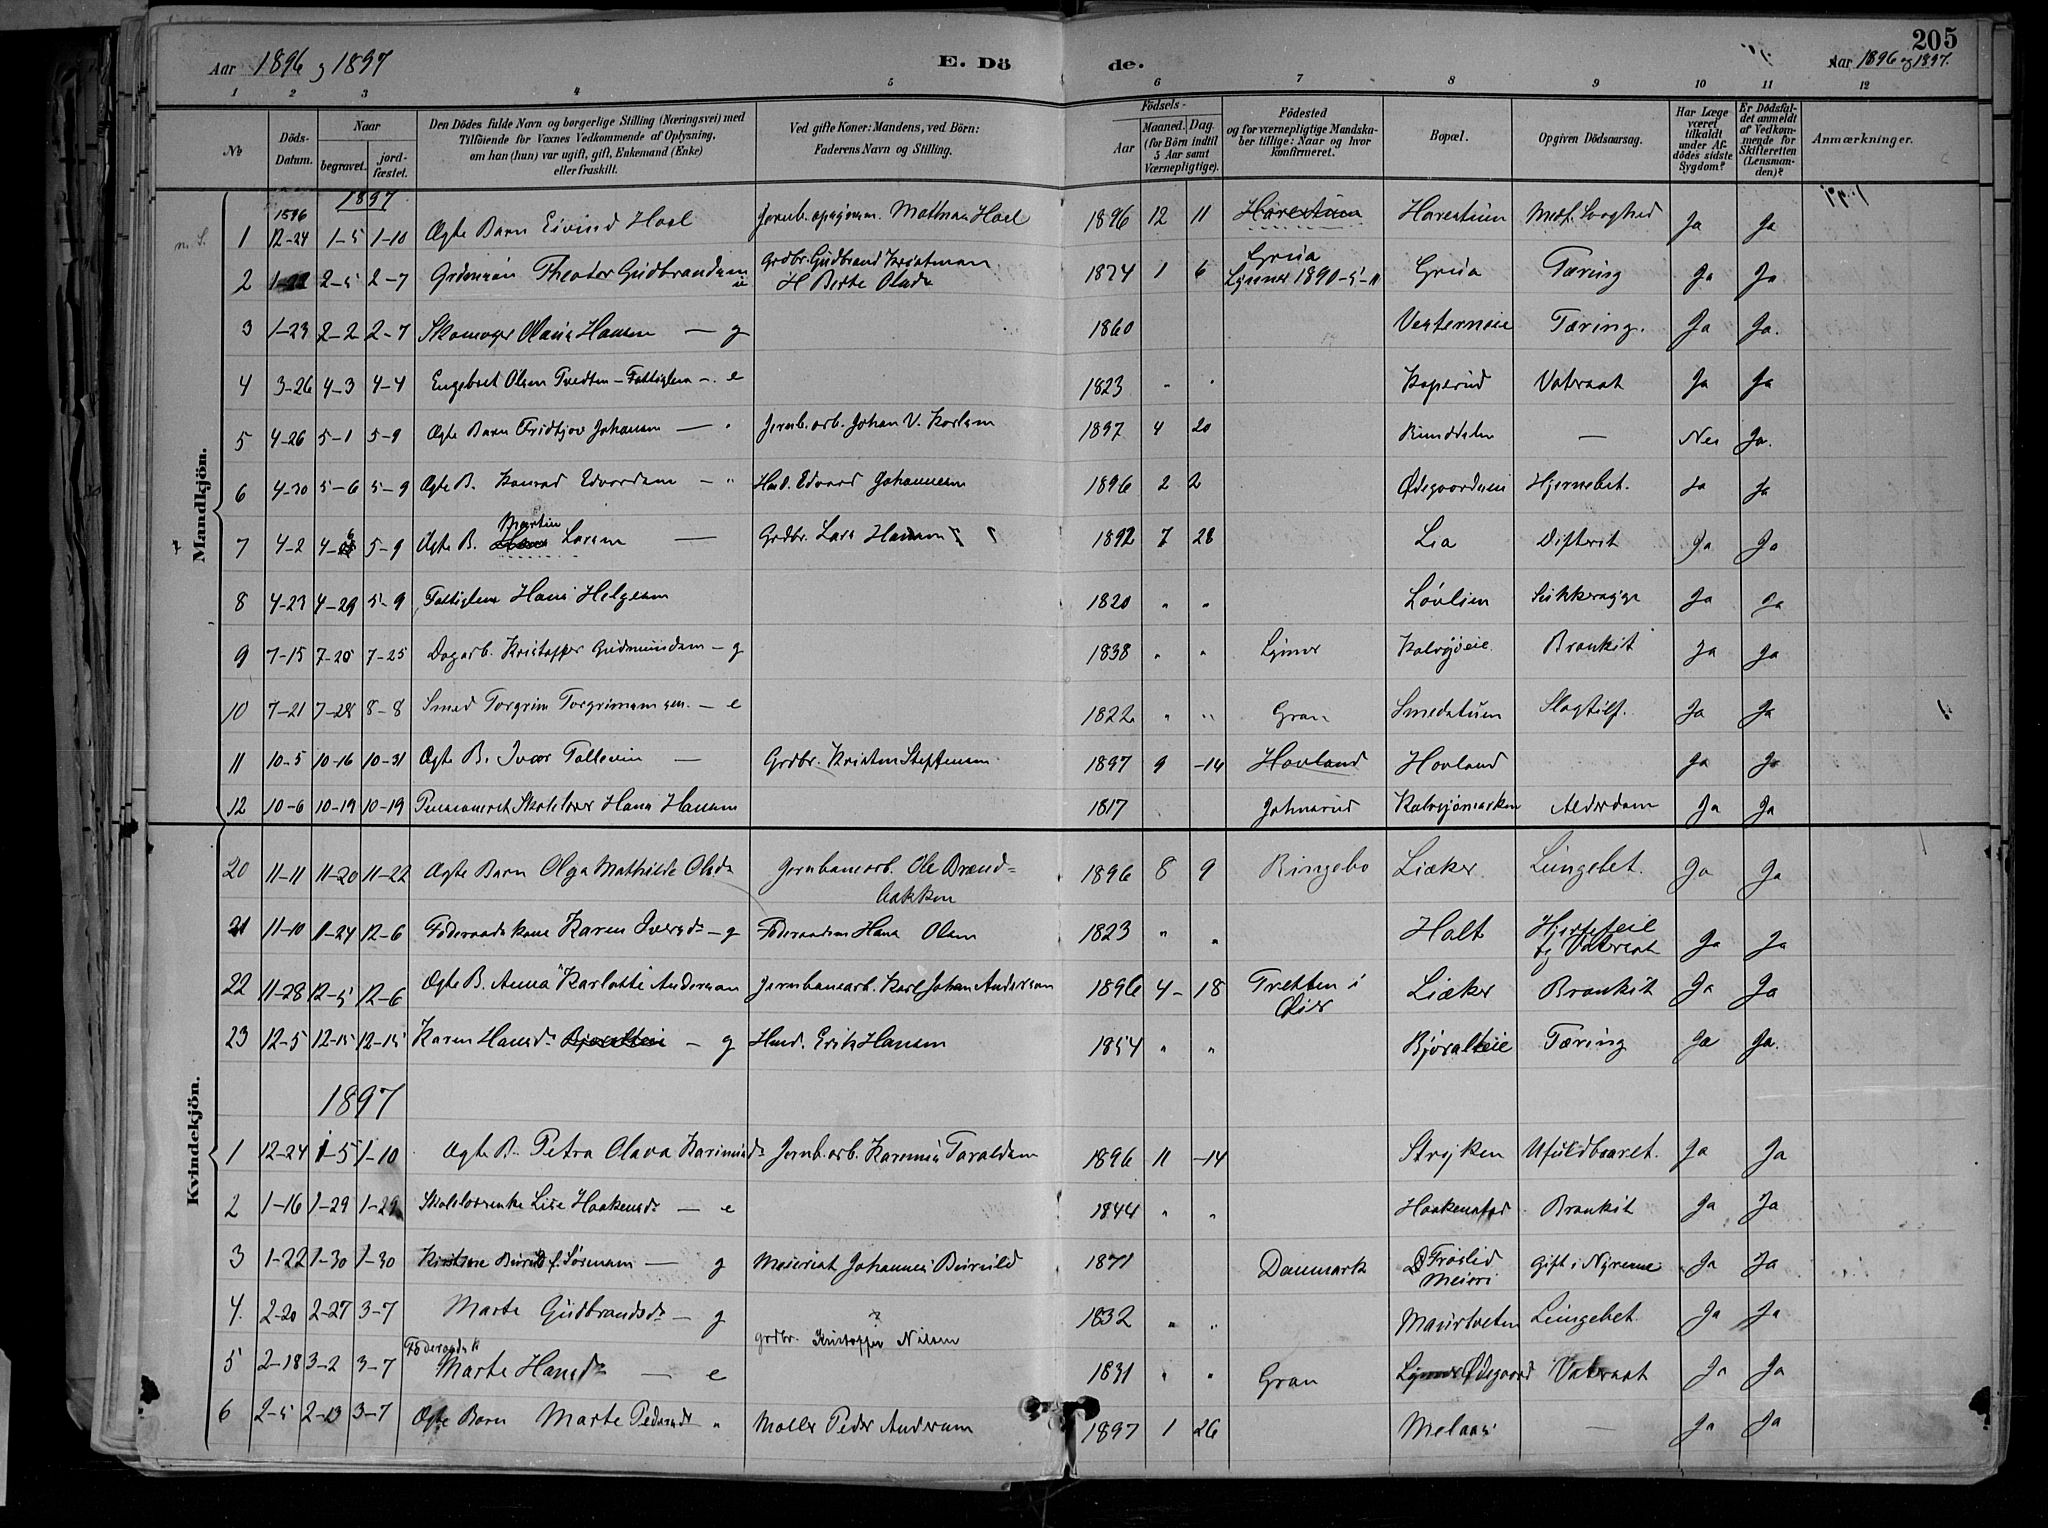 205
Aar 1896 g 1897 E. Dö de. Aar 1896 og 1897.
1 2 3 4 5 6 7 8 9 10 11 12
№ Döds-Datum. Naar begravet. jord-fæstet. Den Dödes fulde Navn og borgerlige Stilling (Næringsvei) med Tilföiende for Voxnes Vedkommende af Oplysning, om han (hun) var ugift, gift, Enkemand (Enke) eller fraskilt. Ved gifte Koner: Mandens, ved Börn: Faderens Navn og Stilling. Födsels- Aar Maaned. Dag. (for Börn indtil 5 Aar samt Værnepligtige). Födested og for værnepligtige Mandskaber tillige: Naar og hvor konfirmeret. Bopæl. Opgiven Dödsaarsag. Har Læge været tilkaldt under Afdödes sidste Sygdom? Er Dödsfaldet anmeldt af Vedkommende for Skifteretten (Lensmanden)? Anmærkninger.
Mandkjön.
1897
1 1896 12-24 1-5 1-10 Ægte Barn Eivind Hoel Jernb. Hoel 1896 12 11 Harestuen Harestuen Medf. Svaghed Ja Ja
2 1-22 2-5 2-7 Theodor Gudbrandsen Grdbr. Gudbrand Kristiansen H Berte Olsdr 1874 1 6 Grua Lynner 1890-5-11 Grua Tæring Ja Ja
3 1-23 2-2 2-7 Skomager Hansen — g 1860 Tæring. Ja Ja.
4 3-26 4-3 4-4 Engebret Olsen Tvedten – Fattiglem – e 1823 " " Vatersot Ja Ja
5 4-26 5-1 5-9 Ægte Barn Fridtjov Johansen — " Jernb. arb. Johan V. Karlsen 1897 4 20 — Nei Ja.
6 4-30 5-6 5-9 Ægte B. Konrad Edvardsen – " Husm. Edvard Johannesen 1896 2 2 Ødegaardseie Hjernebet. Ja Ja
7 4-2 4- 5-9 Ægte B. Martin Larsen — Grdbr. Lars Hansen 1892 7 28 Lia Difterit Ja Ja
8 4-23 4-29 5-9 Fattiglem Hans Helgesen 1820 " " Løvlien Sukkersyge Ja Ja
9 7-15 7-20 7-25 Dagarb. Kristoffer Gudmundsen – g 1838 " " Lynner Kalvsjøeie Bronkit Ja Ja
10 7-21 7-28 8-8 Smed Torgrim Torgrimsen sen. – e 1822 " " Gran Smedstuen Slagtilf. Ja Ja
11 10-5 10-16 10-31 Ægte B. Ivar Tollevin — Grdbr. Kristen Steffensen 1897 9 -14 Hovland Hovland Ja Ja
12 10-6 10-19 10-19 Pensioneret Skolelærer Hans Hansen 1817 Johnsrud Kalvsjømarken Alderdom Ja Ja
Kvindekjön.
20 11-11 11-20 11-22 Ægte Barn Olga Mathilde Olsdr Jernbanearb. Ole Brænd=bakken 1896 8 9 Ringebo Liæker Lungebet. Ja Ja
21 11-10 11-24 12-6 Föderaadskone Karen Iversdr – g Föderaadsm Hans Olsen 1823 " " Holt Hjertefeil og Vatersot Ja Ja
22 11-28 12-5 12-6 Ægte B. Anna Karlotte Andersen Jernbanearb. Karl Johan Andersen 1896 4- 18 Tretten i Øier Liæker Bronkit Ja Ja
23 12-5 12-15 12-15 Karen Hansdr – g Husm. Erik Hansen 1854 " " Bjøralteie Tæring Ja Ja.
1897
1 12-24 1-5 1-10 Ægte B. Petra Olava Jernb. arb. Taraldsen 1896 11 -14 Stryken Ufuldbaaret. Ja Ja
2 1-16 1-29 1-29 Skolelærerenke Lise Haakensdr — e 1844 " " Haakenstad Bronkit Ja Ja
3 1-22 1-30 1-30 f. Sørensen — g Meierist Johannes 1871 Danmark Frøslid Meieri Gift i Nyrerne Ja Ja
4. 2-20 2-27 3-7 Marte Gudbrandsdr – g grdbr. Kristoffer Nilsen 1832 " " Maurtveten Lungebet. Ja Ja
5 2-18 3-2 3-7 Föderaadsk Marte Hansdr — e 1831 " " Gran Lynner Ødegaard Vatersot Ja Ja
6 2-5 2-13 3-7 Ægte Barn Marte Pedersdr " Møller Peder Andersen 1897 1 26 Melaas — Ja Ja